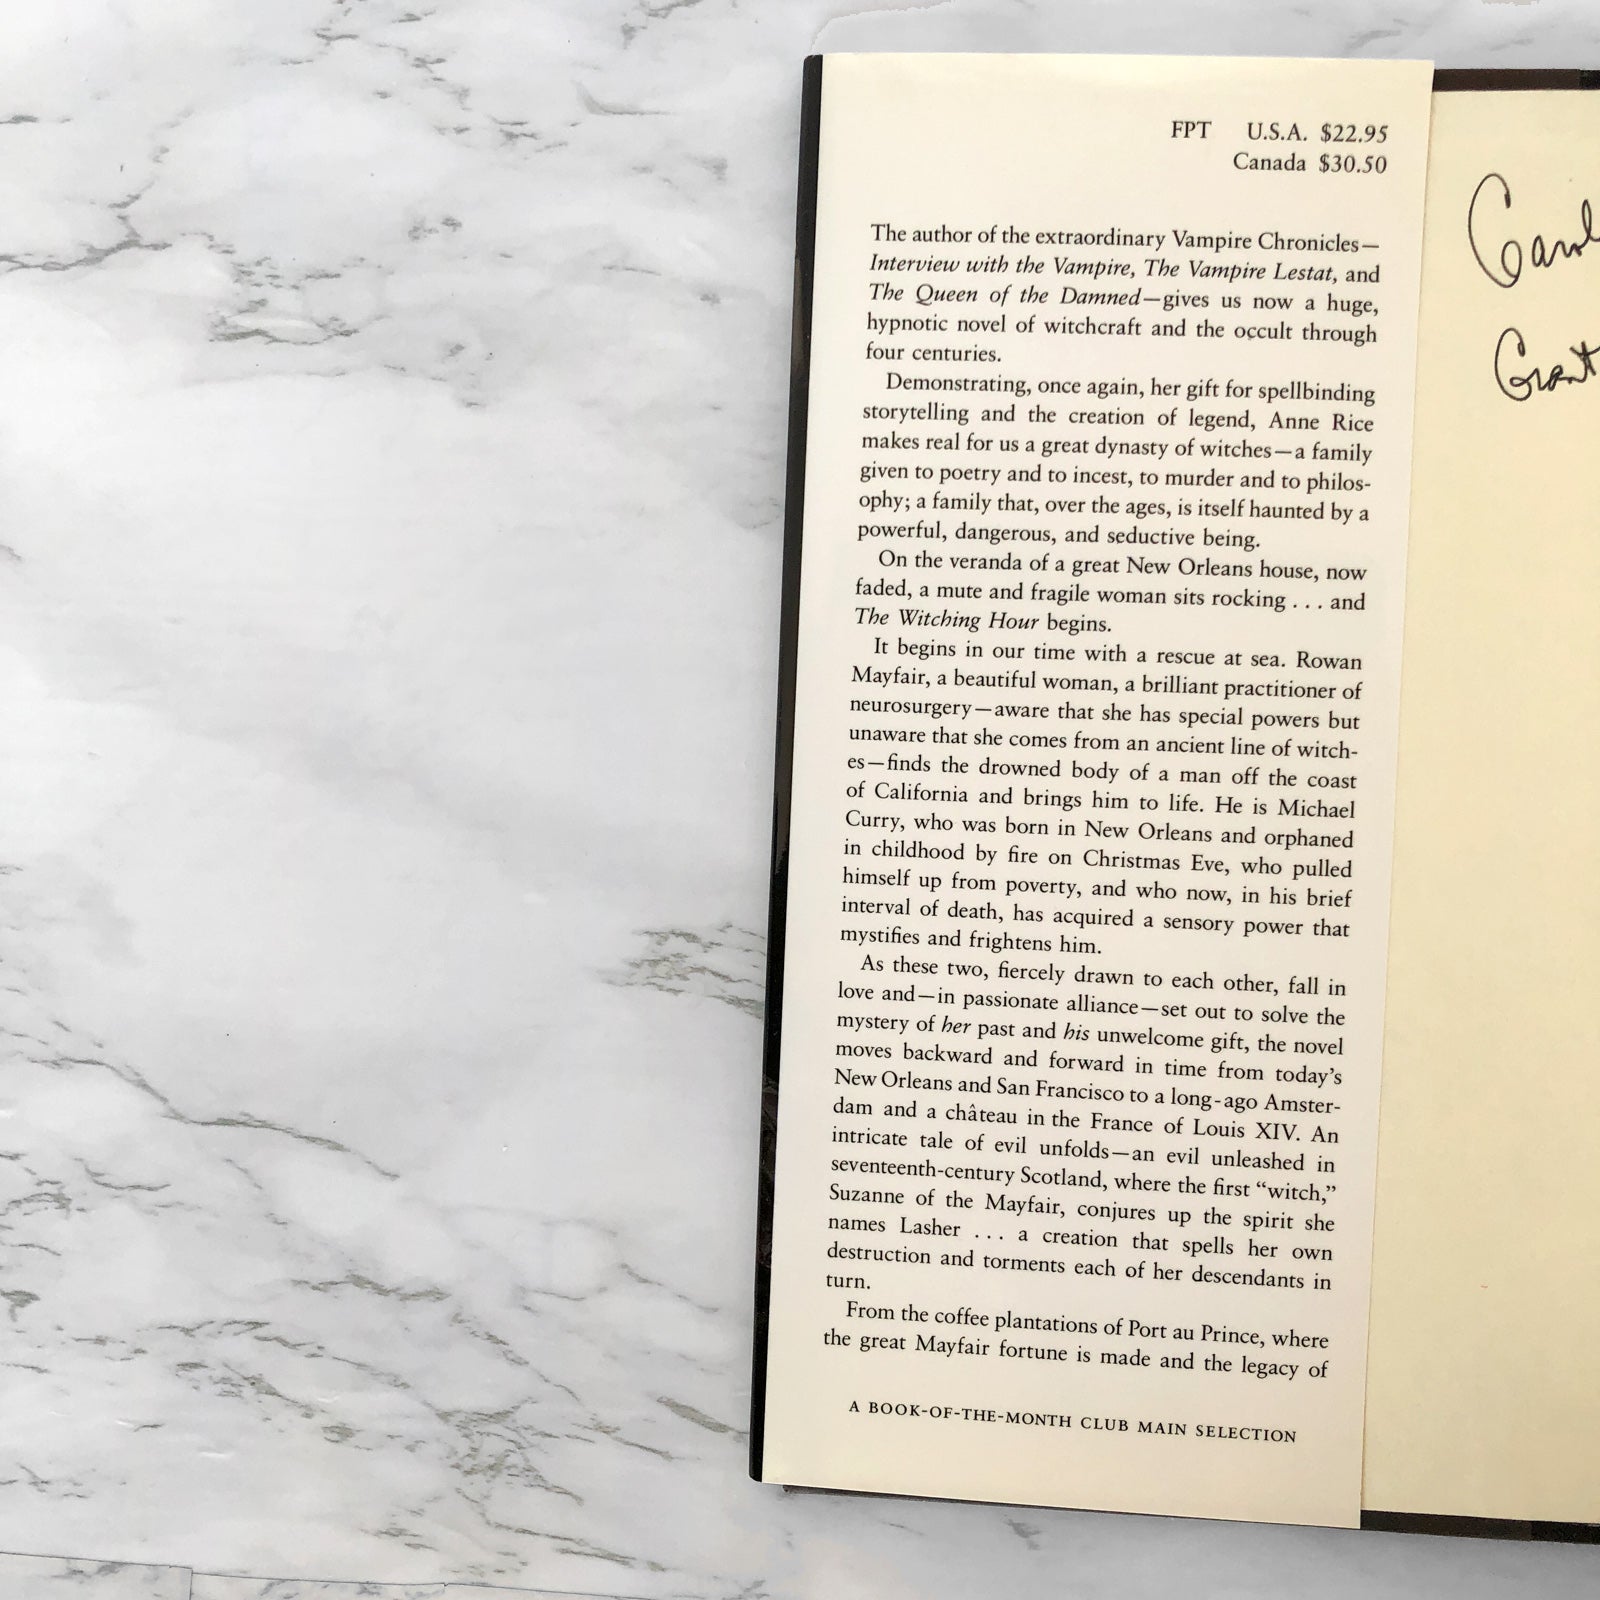 FPT U.S.A. $22.95
Canada $30.50
The author of the extraordinary Vampire Chronicles—
Interview with the Vampire, The Vampire Lestat, and
The Queen of the Damned—gives us now a huge,
hypnotic novel of witchcraft and the occult through
four centuries.
Demonstrating, once again, her gift for spellbinding
storytelling and the creation of legend, Anne Rice
makes real for us a great dynasty of witches—a family
given to poetry and to incest, to murder and to philos-
ophy; a family that, over the ages, is itself haunted by a
powerful, dangerous, and seductive being.
On the veranda of a great New Orleans house, now
faded, a mute and fragile woman sits rocking . . . and
The Witching Hour begins.
It begins in our time with a rescue at sea. Rowan
Mayfair, a beautiful woman, a brilliant practitioner of
neurosurgery—aware that she has special powers but
unaware that she comes from an ancient line of witch-
es—finds the drowned body of a man off the coast
of California and brings him to life. He is Michael
Curry, who was born in New Orleans and orphaned
in childhood by fire on Christmas Eve, who pulled
himself up from poverty, and who now, in his brief
interval of death, has acquired a sensory power that
mystifies and frightens him.
As these two, fiercely drawn to each other, fall in
love and—in passionate alliance—set out to solve the
mystery of her past and his unwelcome gift, the novel
moves backward and forward in time from today's
New Orleans and San Francisco to a long-ago Amster-
dam and a château in the France of Louis XIV. An
intricate tale of evil unfolds—an evil unleashed in
seventeenth-century Scotland, where the first “witch,”
Suzanne of the Mayfair, conjures up the spirit she
names Lasher . . . a creation that spells her own
destruction and torments each of her descendants in
turn.
From the coffee plantations of Port au Prince, where
the great Mayfair fortune is made and the legacy of
A BOOK-OF-THE-MONTH CLUB MAIN SELECTION
Carol
Grant